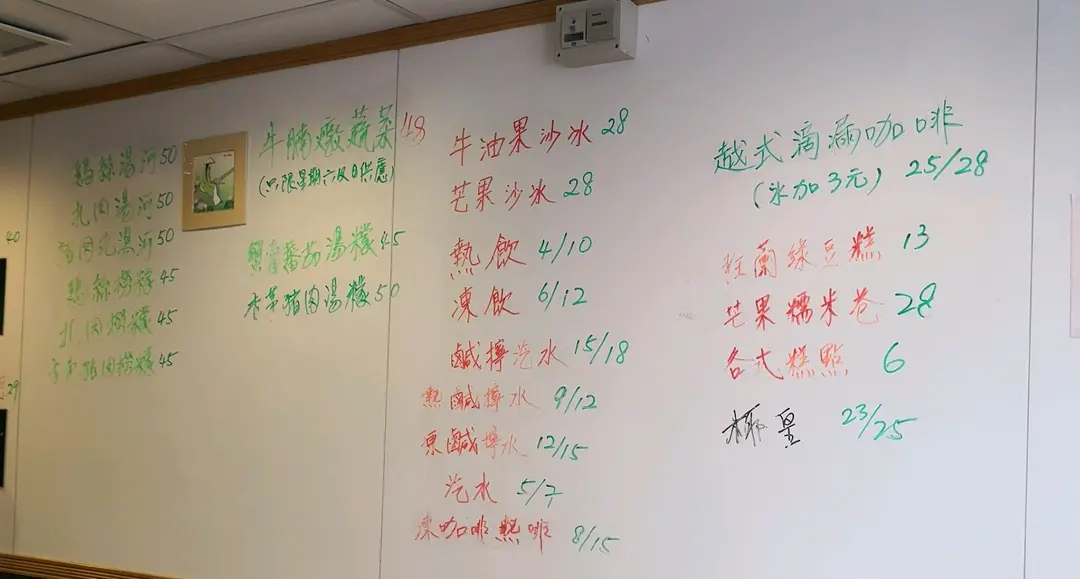 40
29
鷄絲湯河 50
扎肉湯河 50
猪肉扎湯河 50
鷄絲撈檬 45
扎肉撈檬 45
香茅猪肉撈檬 45
牛腩燉蔬菜 48
(只限星期六及日供應)
蟹膏蕃茄湯檬 45
香茅猪肉湯檬 50
牛油果沙冰 28
芒果沙冰 28
熱飲 4/10
凍飲 6/12
鹹檸汽水 15/18
熱鹹檸水 9/12
凍鹹檸水 12/15
汽水 5/7
凍咖啡熱啡 8/15
越式滴漏咖啡
(氷加3元) 25/28
班蘭綠豆糕 13
芒果糯米卷 28
各式糕點 6
椰皇 23/25